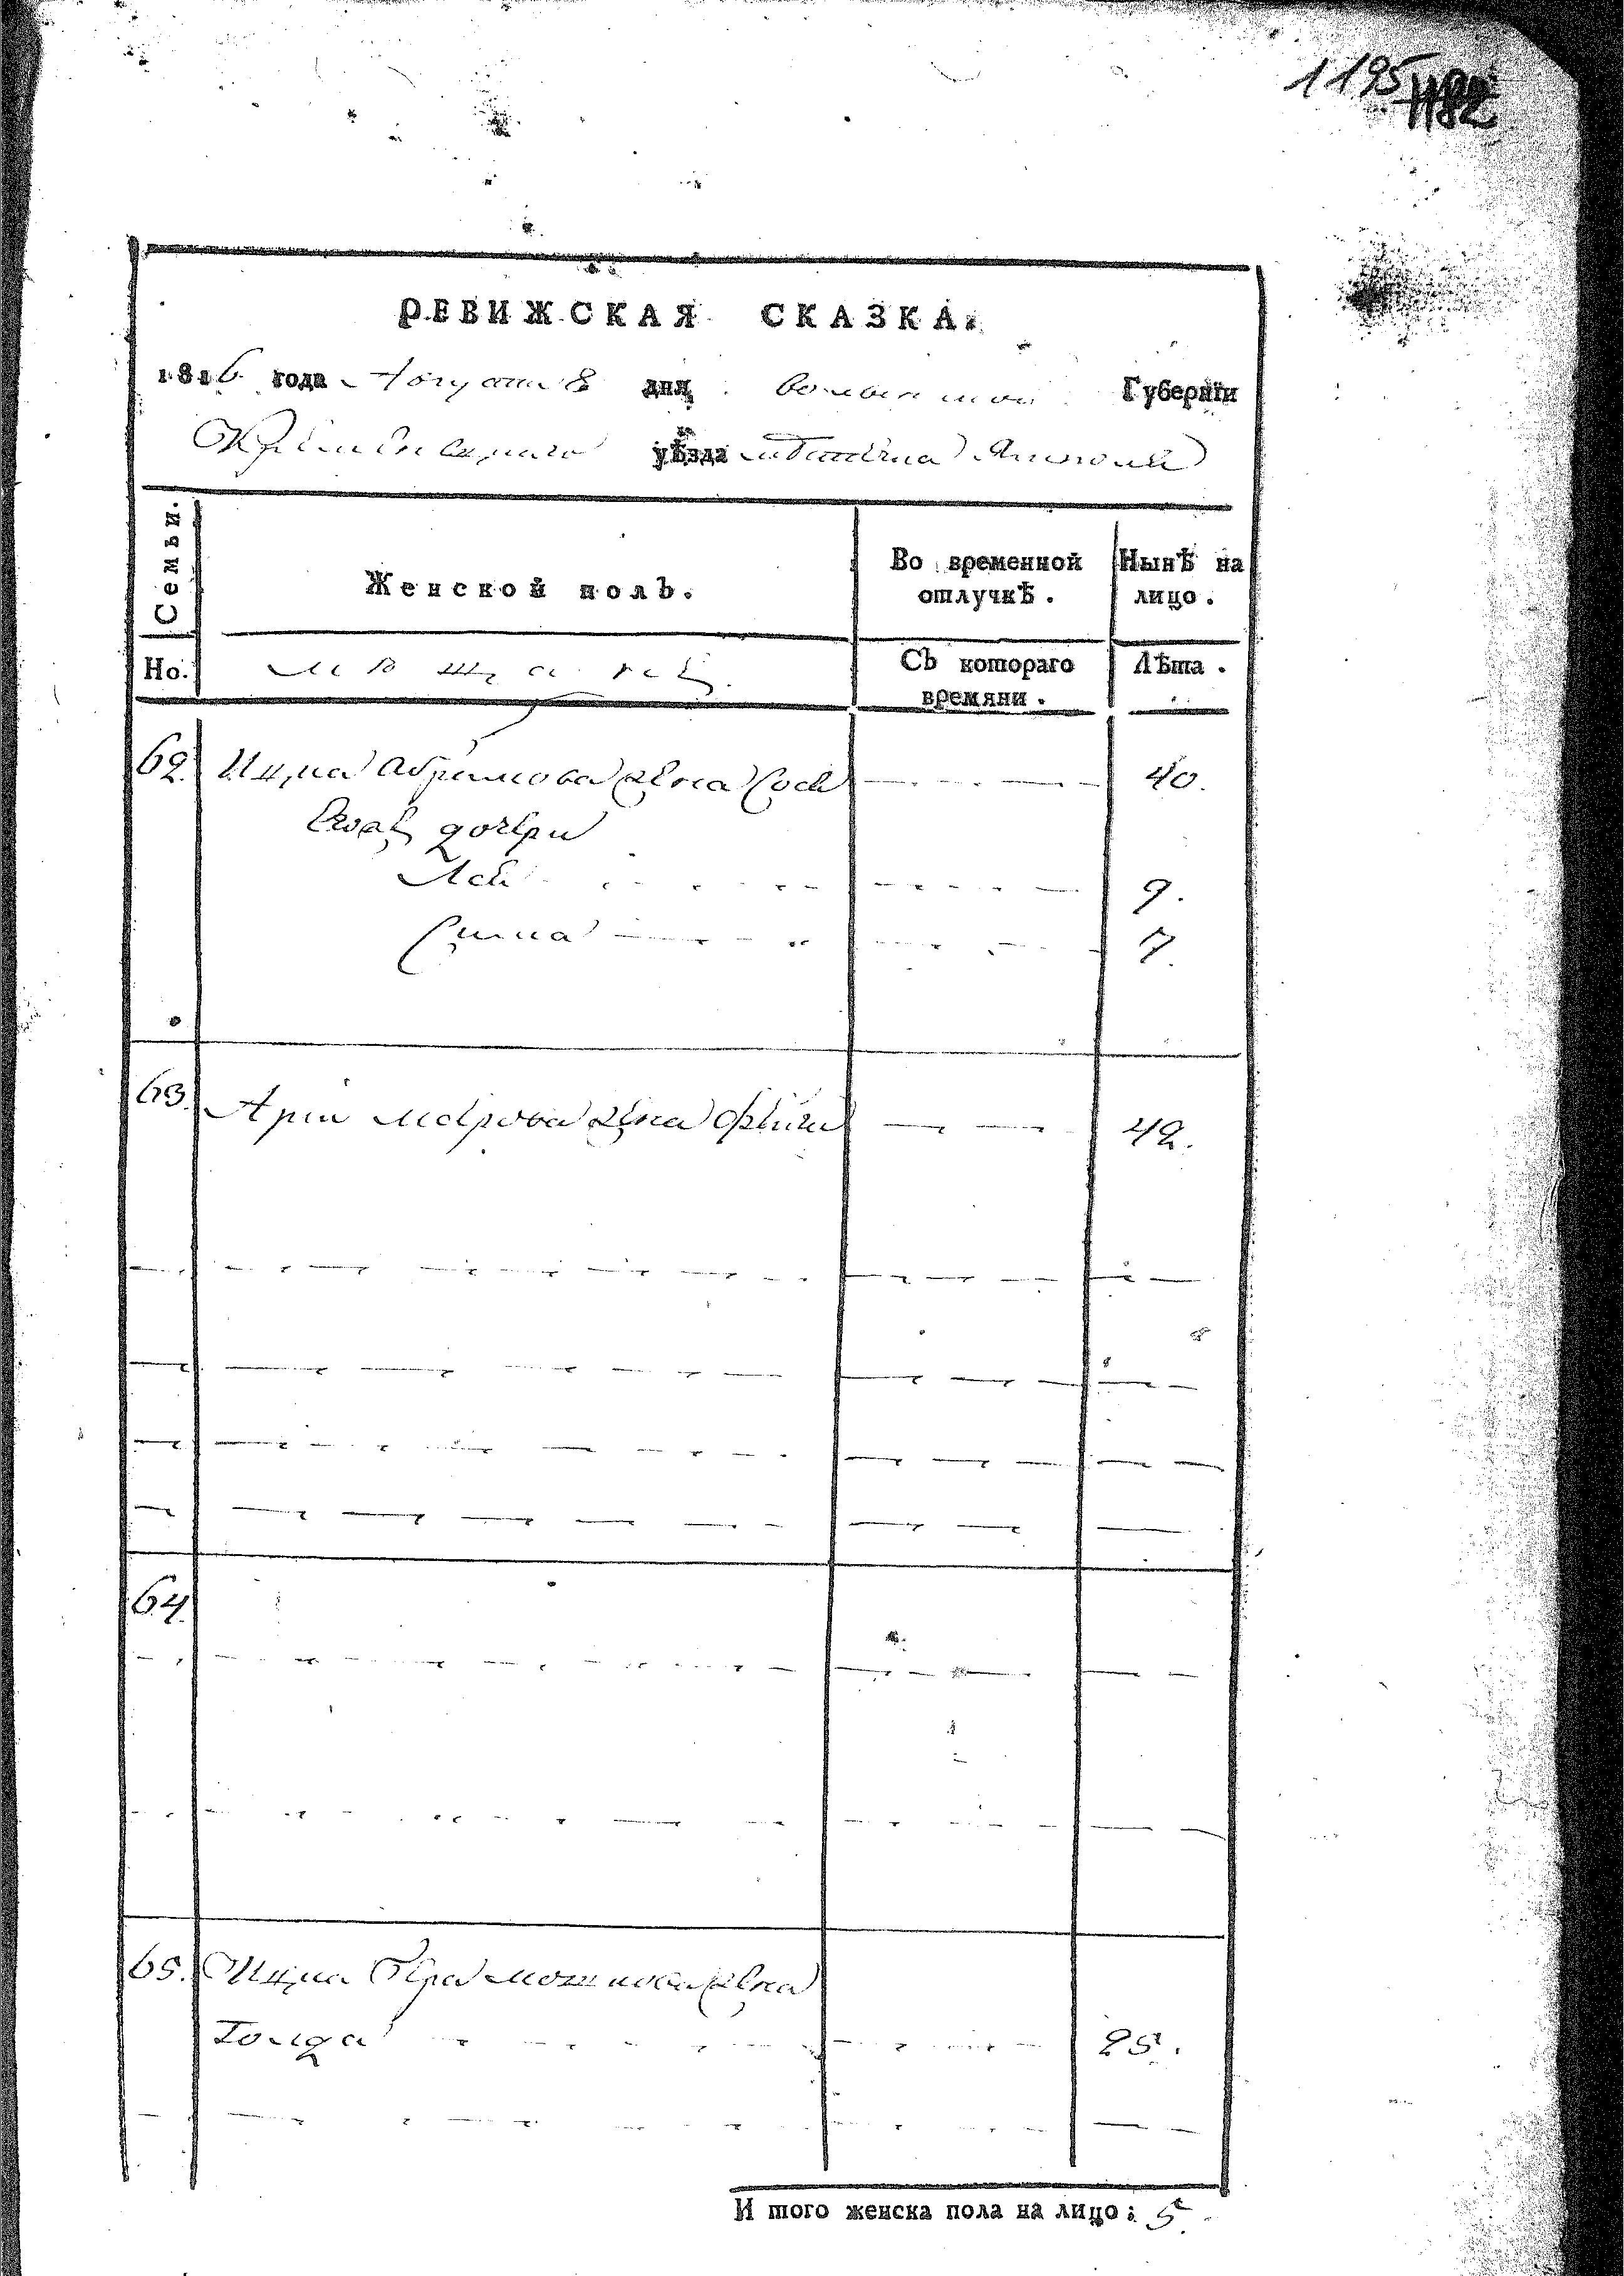 1195 1182
РЕВИЖСКАЯ СКАЗКА.
1816 года Августа 8 дня Волынской Губерніи
Кременецкаго уѣзда местечка Ямполя
Семьи.
Женской полъ.
Во временной отлучкѣ.
Нынѣ на лицо.
Но.
мещане
Съ котораго времяни.
Лѣта.
62. Ицка Абрамова жена Сося 40.
Ево дочери
Лея 9.
Сима 7.
63. Ария Меерова жена Фейга 42.
64.
65. Ицка Гера Мошкова жена
Голда 25.
И того женска пола на лицо: 5.